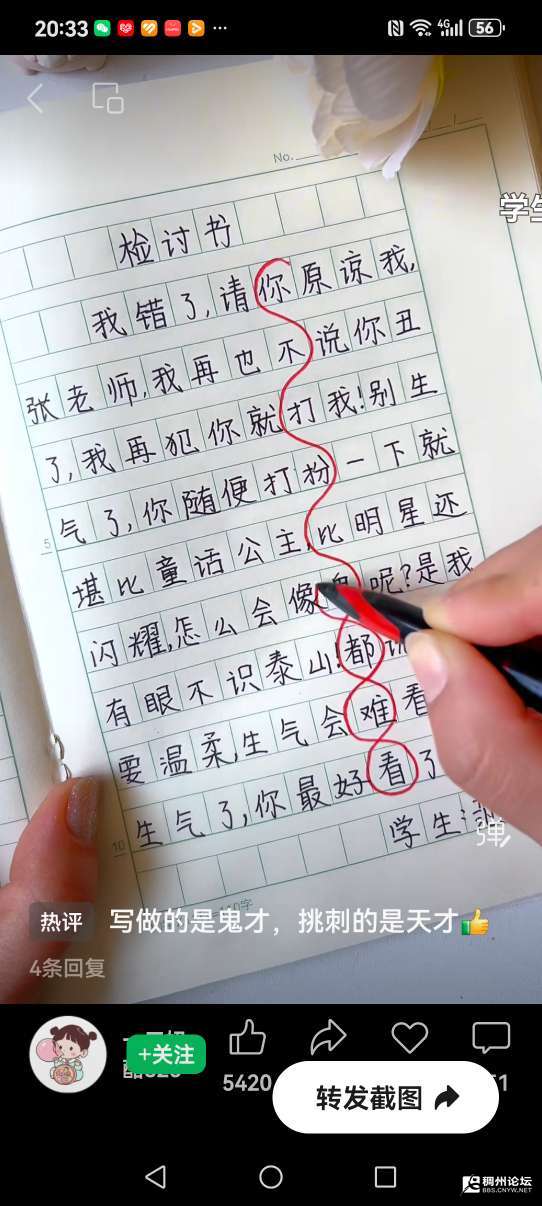 20:33
4G
56
No.
学生
检讨书
我错了,请你原谅我,
张老师,我再也不说你丑
了,我再犯你就打我!别生
气了,你随便打扮一下就
5
堪比童话公主,比明星还
闪耀,怎么会像 呢?是我
有眼不识泰山!都
要温柔,生气会难看
生气了,你最好看了
10
学生:
弹
热评 写做的是鬼才，挑刺的是天才👍
4条回复
+关注
5420
转发截图
稠州论坛
BBS.CNYW.NET